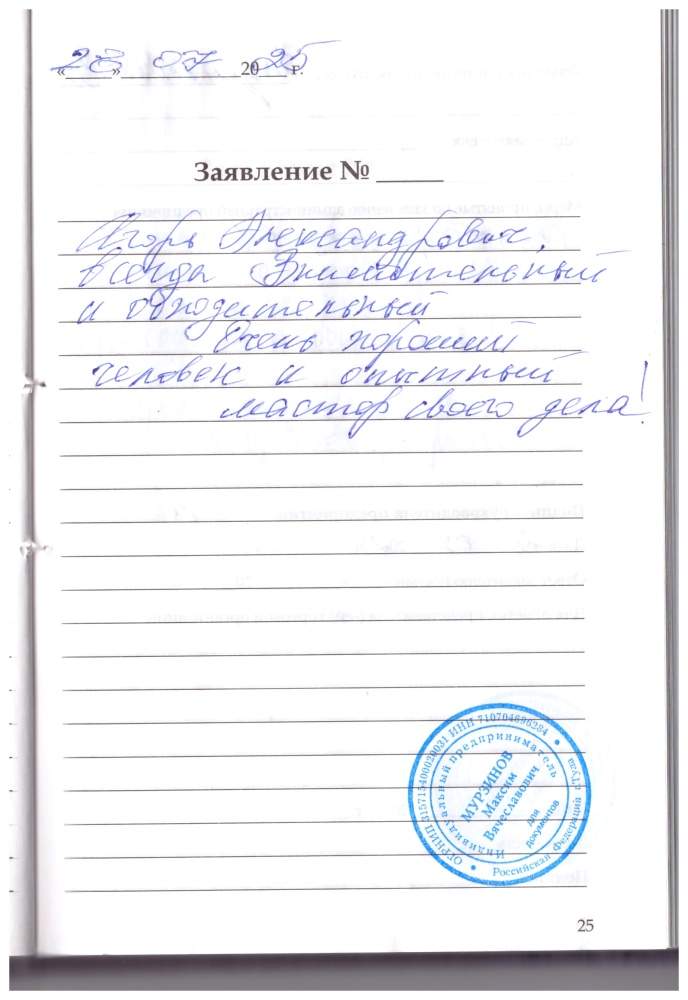 «28» 07 2025 г.
Заявление № _____
Игорь Александрович,
всегда Внимательный
и обходительный
Очень хороший
человек и опытный
мастер своего дела!
ОГРНИП 315715400020031 ИНН 710704696284
Индивидуальный предприниматель
МУРЗИНОВ
Максим
Вячеславович
для
документов
Российская Федерация г.Тула
25